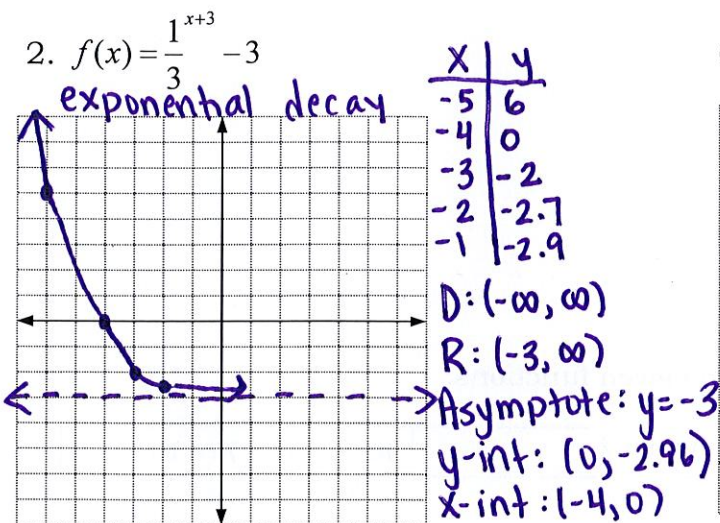 2. f(x) = 1/3^(x+3) − 3
exponential decay
x | y
-5 | 6
-4 | 0
-3 | -2
-2 | -2.7
-1 | -2.9
D: (-∞, ∞)
R: (-3, ∞)
Asymptote: y = -3
y-int: (0, -2.96)
x-int: (-4, 0)